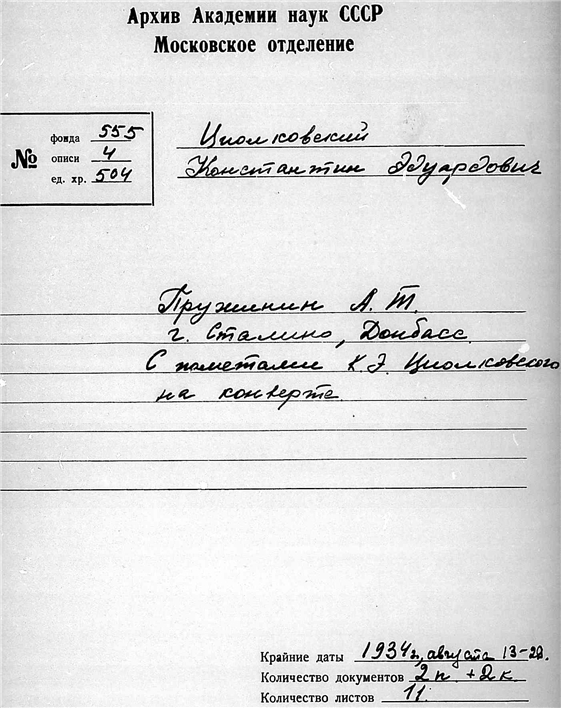 Архив Академии наук СССР
Московское отделение
№
фонда 555
описи 4
ед. хр. 504
Циолковский
Константин Эдуардович
Пружинин А. Т.
г. Сталино, Донбасс.
С пометами К. Э. Циолковского
на конверте
Крайние даты 1934 г., августа 13-28.
Количество документов 2 п + 2 к
Количество листов 11.